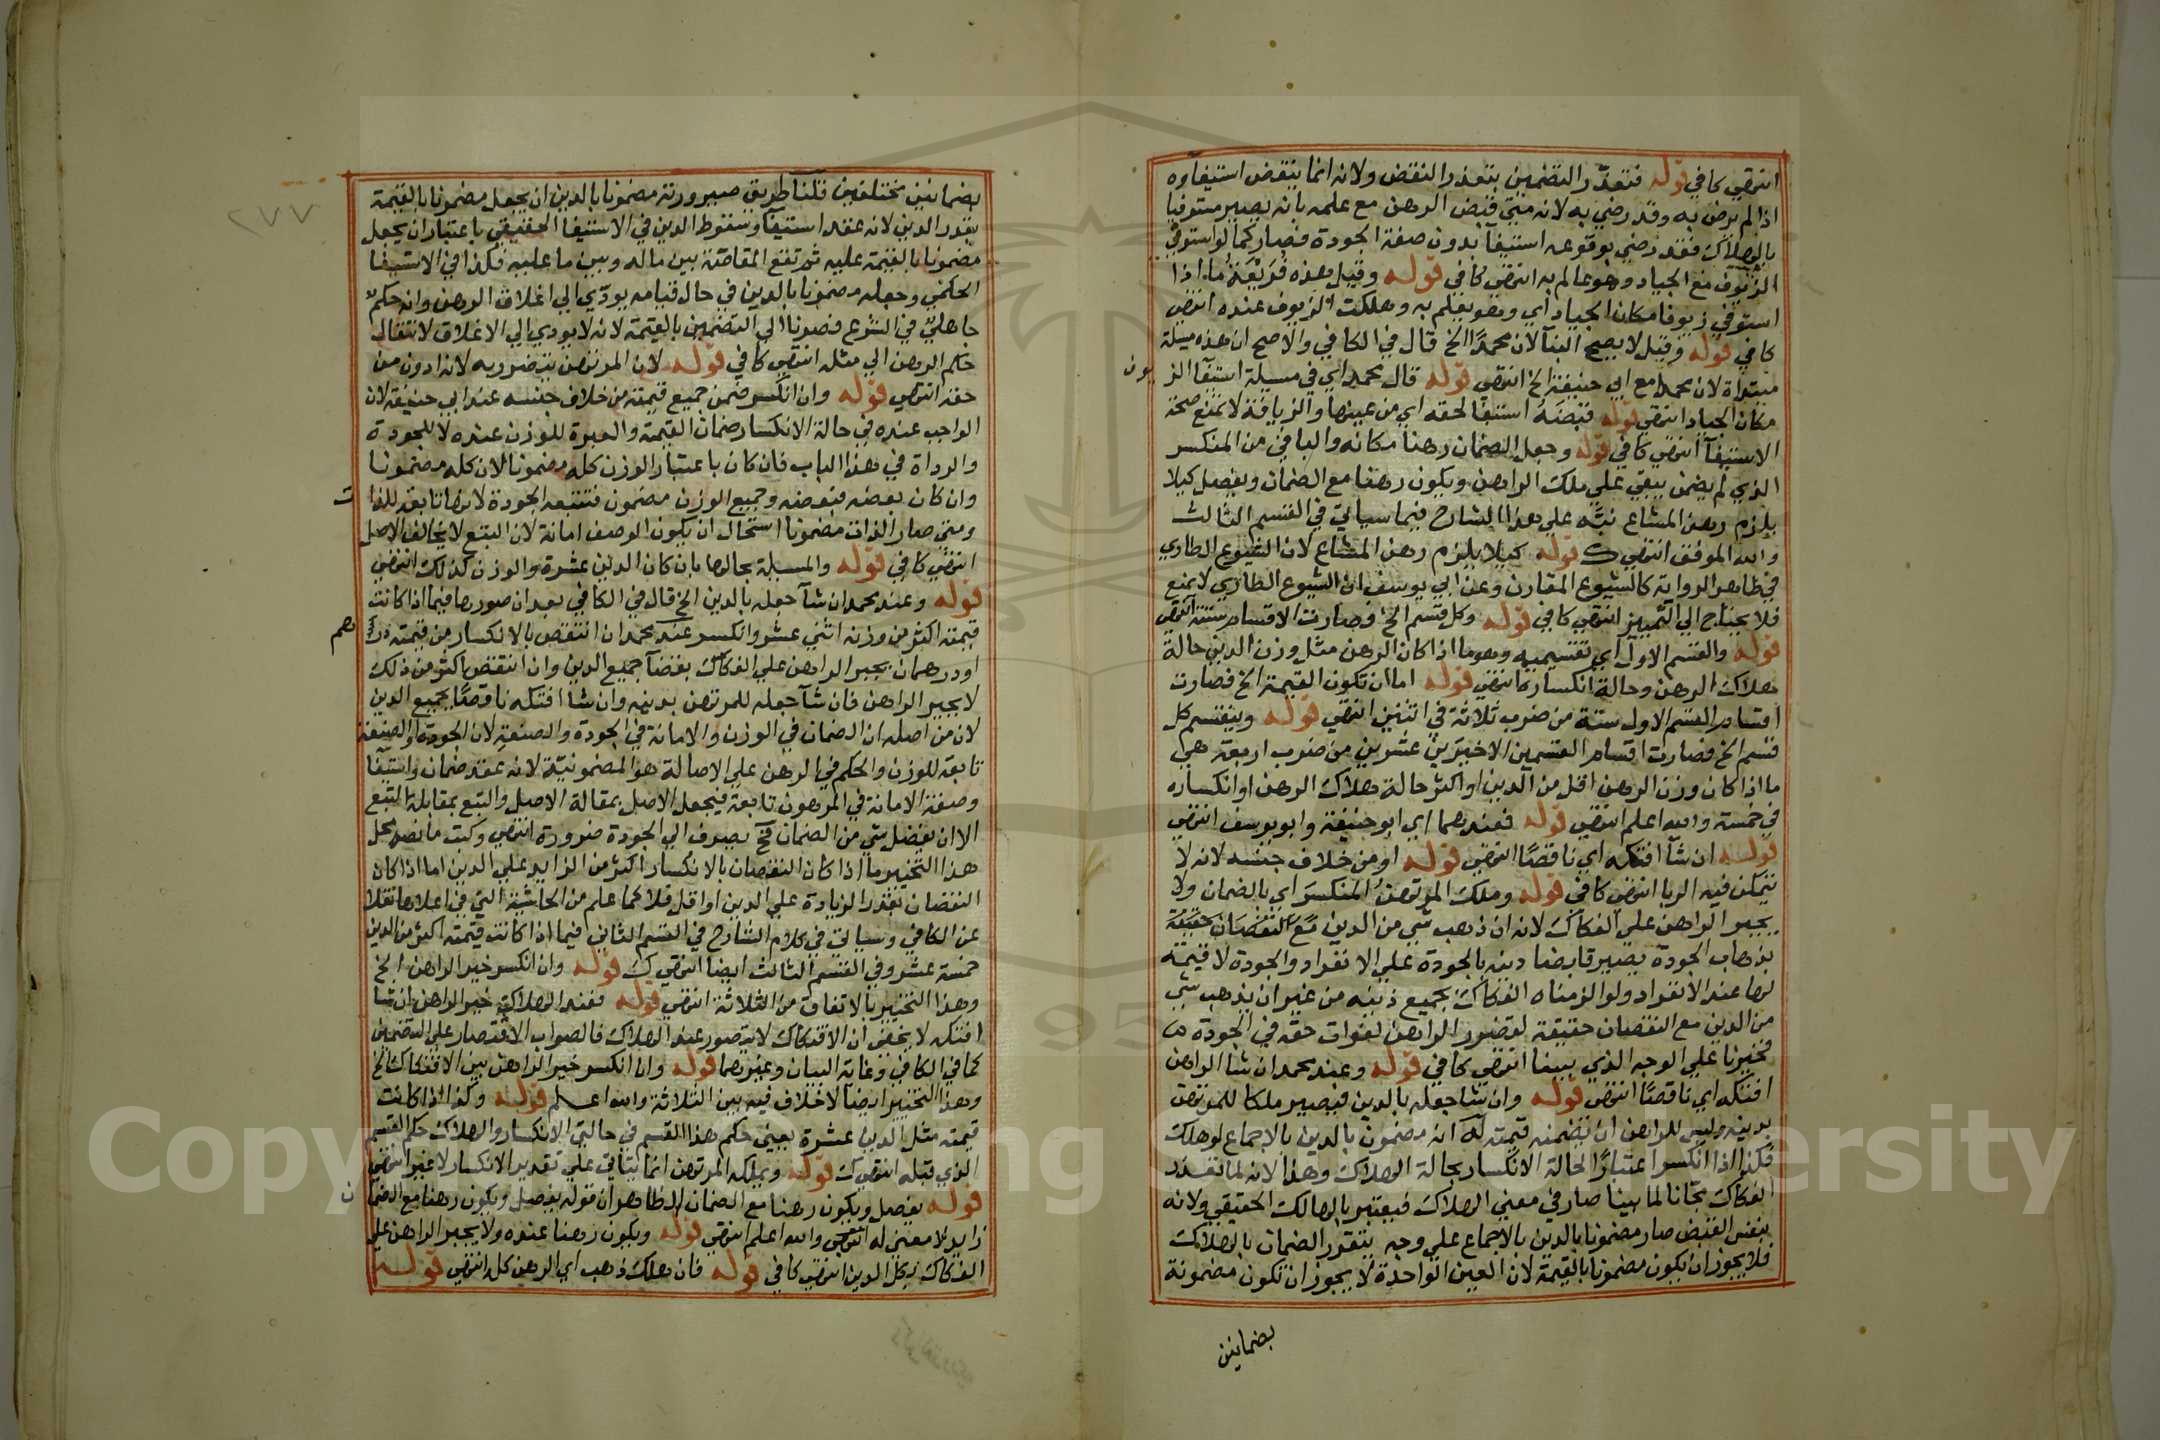 انتهي كافي قوله فتعذر التضمين بتعذر النقض ولانه انما ينقض استيفاوه
اذا لم يرض به وقد رضي به لانه متي قبض الرهن مع علمه بانه يصير مستوفيا
بالهلاك فقد رضي بوقوعه استيفآ بدون صفة الجودة فصار كما لو استوفي
الزيوف مع الجياد وهو عالم به انتهي كافي قوله وقيل هذه فريعة ما اذا
استوفي زيوفا مكان الجياد اي وهو يعلم به وهلكت الزيوف عنده انتهي
كافي قوله وقيل لا يصح البنآ لان محمدا الخ قال في الكافي والاصح ان هذه مسيلة
مبتداة لان محمدا مع ابي حنيفة الخ انتهي قوله قال محمد اي في مسيلة استيفآ الزيوف
مكان الجياد انتهي قوله قبضه استيفا لحقه اي من عينها والزيافة لا تمنع صحة
الاستيفآ انتهي كافي قوله وجعل الضمان رهنا مكانه والباقي من المنكسر
الذي لم يضمن يبقي علي ملك الراهن ويكون رهنا مع الضمان ويفصل كيلا
يلزم رهن المشاع نبه علي هذا الشارح فيما سياتي في القسم الثالث
والله الموفق انتهي ك قوله كيلا يلزم رهن المشاع لان الشيوع الطاري
في ظاهر الرواية كالشيوع المقارن وعن ابي يوسف ان الشيوع الطاري لا يمنع
فلا يحتاج الي التمييز انتهي كافي قوله وكل قسم الخ فصارت الاقسام ستة انتهي
قوله والقسم الاول اي بقسيميه وهو ما اذا كان الرهن مثل وزن الدين حالة
هلاك الرهن وحالة انكساره انتهي قوله اما ان تكون القيمة الخ فصارت
اقسام القسم الاول ستة من ضرب ثلاثة في اثنين انتهي قوله وينقسم كل
قسم الخ فصارت اقسام القسمين الاخيرين عشرين من ضرب اربعة هي
ما اذا كان وزن الرهن اقل من الدين او اكثر حالة هلاك الرهن او انكساره
في خمسة والله اعلم انتهي قوله فعندهما اي ابو حنيفة وابو يوسف انتهي
قوله ان شآ افتكه اي ناقصا انتهي قوله او من خلاف جنسه لانه لا
يتمكن فيه الربا انتهي كافي قوله وملك المرتهن المنكسر اي بالضمان ولا
يجبر الراهن علي الفكاك لانه ان ذهب شي من الدين مع النقصان حقيقة
بذهاب الجودة يصير قابضا دينه بالجودة علي الانفراد والجودة لا قيمة
لها عند الانفراد ولو الزمناه الفكاك بجميع دينه من غير ان يذهب شي
من الدين مع النقصان حقيقة لتضرر الراهن لفوات حقه في الجودة
فخيرنا علي الوجه الذي بينا انتهي كافي قوله وعند محمد ان شا الراهن
افتكه اي ناقصا انتهي قوله وان شا جعله بالدين فيصير ملكا للمرتهن
بدينه وليس للراهن ان يضمنه قيمته له انه مضمون بالدين بالاجماع لو هلك
فكذا اذا انكسر اعتبارا لحالة الانكسار بحالة الهلاك وهذا لانه لما تعذر
الفكاك مجانا لما بينا صار في معني الهلاك فيعتبر بالهالك الحقيقي ولانه
بنفس القبض صار مضمونا بالدين بالاجماع علي وجه يتقرر الضمان بالهلاك
فلا يجوز ان يكون مضمونا بالقيمة لان العين الواحدة لا يجوز ان تكون مضمونة
بضمانين
٢٧٧
بضمانين مختلفين قلنا طريق صيرورته مضمونا بالدين ان يجعل مضمونا بالقيمة
بقدر الدين لانه عقد استيفآ وسقوط الدين في الاستيفا الحقيقي باعتبار ان يجعل
مضمونا بالقيمة عليه ثم تقع المقاصة بين ماله وبين ما عليه فكذا في الاستيفا
الحكمي وجعله مضمونا بالدين في حال قيامه يودي الي اغلاق الرهن وانه حكم
جاهلي في الشرع فصرنا الي التضمين بالقيمة لانه لا يودي الي الاغلاق لانتقال
حكم الرهن الي مثله انتهي كافي قوله لان المرتهن يتضرر به لانه ادون من
حقه انتهي قوله وان انكسر ضمن جميع قيمته من خلاف جنسه عند ابي حنيفة لان
الواجب عنده في حالة الانكسار ضمان القيمة والعبرة للوزن عنده لا للجودة
والرداة في هذا الباب فان كان باعتبار الوزن كله مضمونا لان كله مضمونا
وان كان بعضه فبعضه وجميع الوزن مضمون فتتبعه الجودة لانها تابعة للذات
ومتي صار الذات مضمونا استحال ان يكون الوصف امانة لان التبع لا يخالف الاصل
انتهي كافي قوله والمسيلة بحالها بان كان الدين عشرة والوزن كذلك انتهي
قوله وعند محمد ان شآ جعله بالدين الخ قال في الكافي بعد ان صورها فيما اذا كانت
قيمته اكثر من وزنه اثني عشر وانكسر عند محمد ان انتقص بالانكسار من قيمته درهم
او درهمان يجبر الراهن علي الفكاك بقضآ جميع الدين وان انتقص باكثر من ذلك
لا يجبر الراهن فان شآ جعله للمرتهن بدينه وان شا افتكه ناقصا بجميع الدين
لان من اصله ان الضمان في الوزن والامانة في الجودة والصنعة لان الجودة والصنعة
تابعة للوزن والحكم في الرهن علي الاصالة هو المضمونية لانه عقد ضمان واستيفآ
وصفة الامانة في المرهون تابعة فيجعل الاصل بمقالة الاصل والتبع بمقابلة التبع
الا ان يفضل شي من الضمان فح يصرف الي الجودة ضرورة انتهي وكتب ما نصه محل
هذا التخيير ما اذا كان النقصان بالانكسار اكثر من الزايد علي الدين اما اذا كان
النقصان بقدر الزيادة علي الدين او اقل فلا كما علم من الحاشية التي في اعلاها نقلا
عن الكافي وسياتي في كلام الشارح في القسم الثاني فيما اذا كانت قيمته اكثر من الدين
خمسة عشر وفي القسم الثالث ايضا انتهي ك قوله وان انكسر خير الراهن الخ
وهذا التخيير بالاتفاق من الثلاثة انتهي قوله فعند الهلاك خير الراهن ان شا
افتكه لا يخفي ان الافتكاك لا يتصور عند الهلاك فالصواب الاقتصار علي التضمين
كما في الكافي وغاية البيان وغيرهما قوله وان انكسر خير الراهن بين الافتكاك الخ
وهذا التخيير ايضا لا خلاف فيه بين الثلاثة والله اعلم قوله وكذا اذا كانت
قيمته مثل الدين عشرة يعني حكم هذا القسم في حالتي الانكسار والهلاك حكم القسم
الذي قبله انتهي ك قوله ويملكه المرتهن انما يتاتي علي تقدير الانكسار لا غير انتهي
قوله يفصل ويكون رهنا مع الضمان الظاهر ان قوله يفصل ويكون رهنا مع الضمان
زايد لا معني له انتهي والله اعلم انتهي قوله ويكون رهنا عنده ولا يجبر الراهن علي
الفكاك بكل الدين انتهي كافي قوله فان هلك ذهب اي الرهن كله انتهي قوله
Copyright © King Saud University